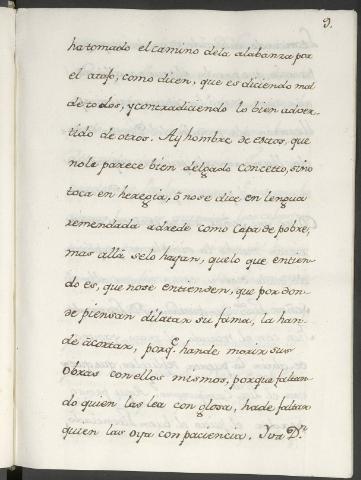 9.
ha tomado el camino dela alabanza por
el atajo, como dicen, que es diciendo mal
de todos, y contradiciendo lo bien adver-
tido de otros. Ay hombre de estos, que
nole parece bien delgado concetto, sino
toca en heregia, ó nose dice en lengua
remendada adrede como capa de pobre;
mas allà selo hayan, quelo que entien-
do es, que nose entienden, que por don-
de piensan dilatar su fama, la han
de acortar, porq.e hande morir sus
obras con ellos mismos, porque faltan-
do quien las lea con glosa, hade faltar
quien las oya con paciencia. Iva D.n